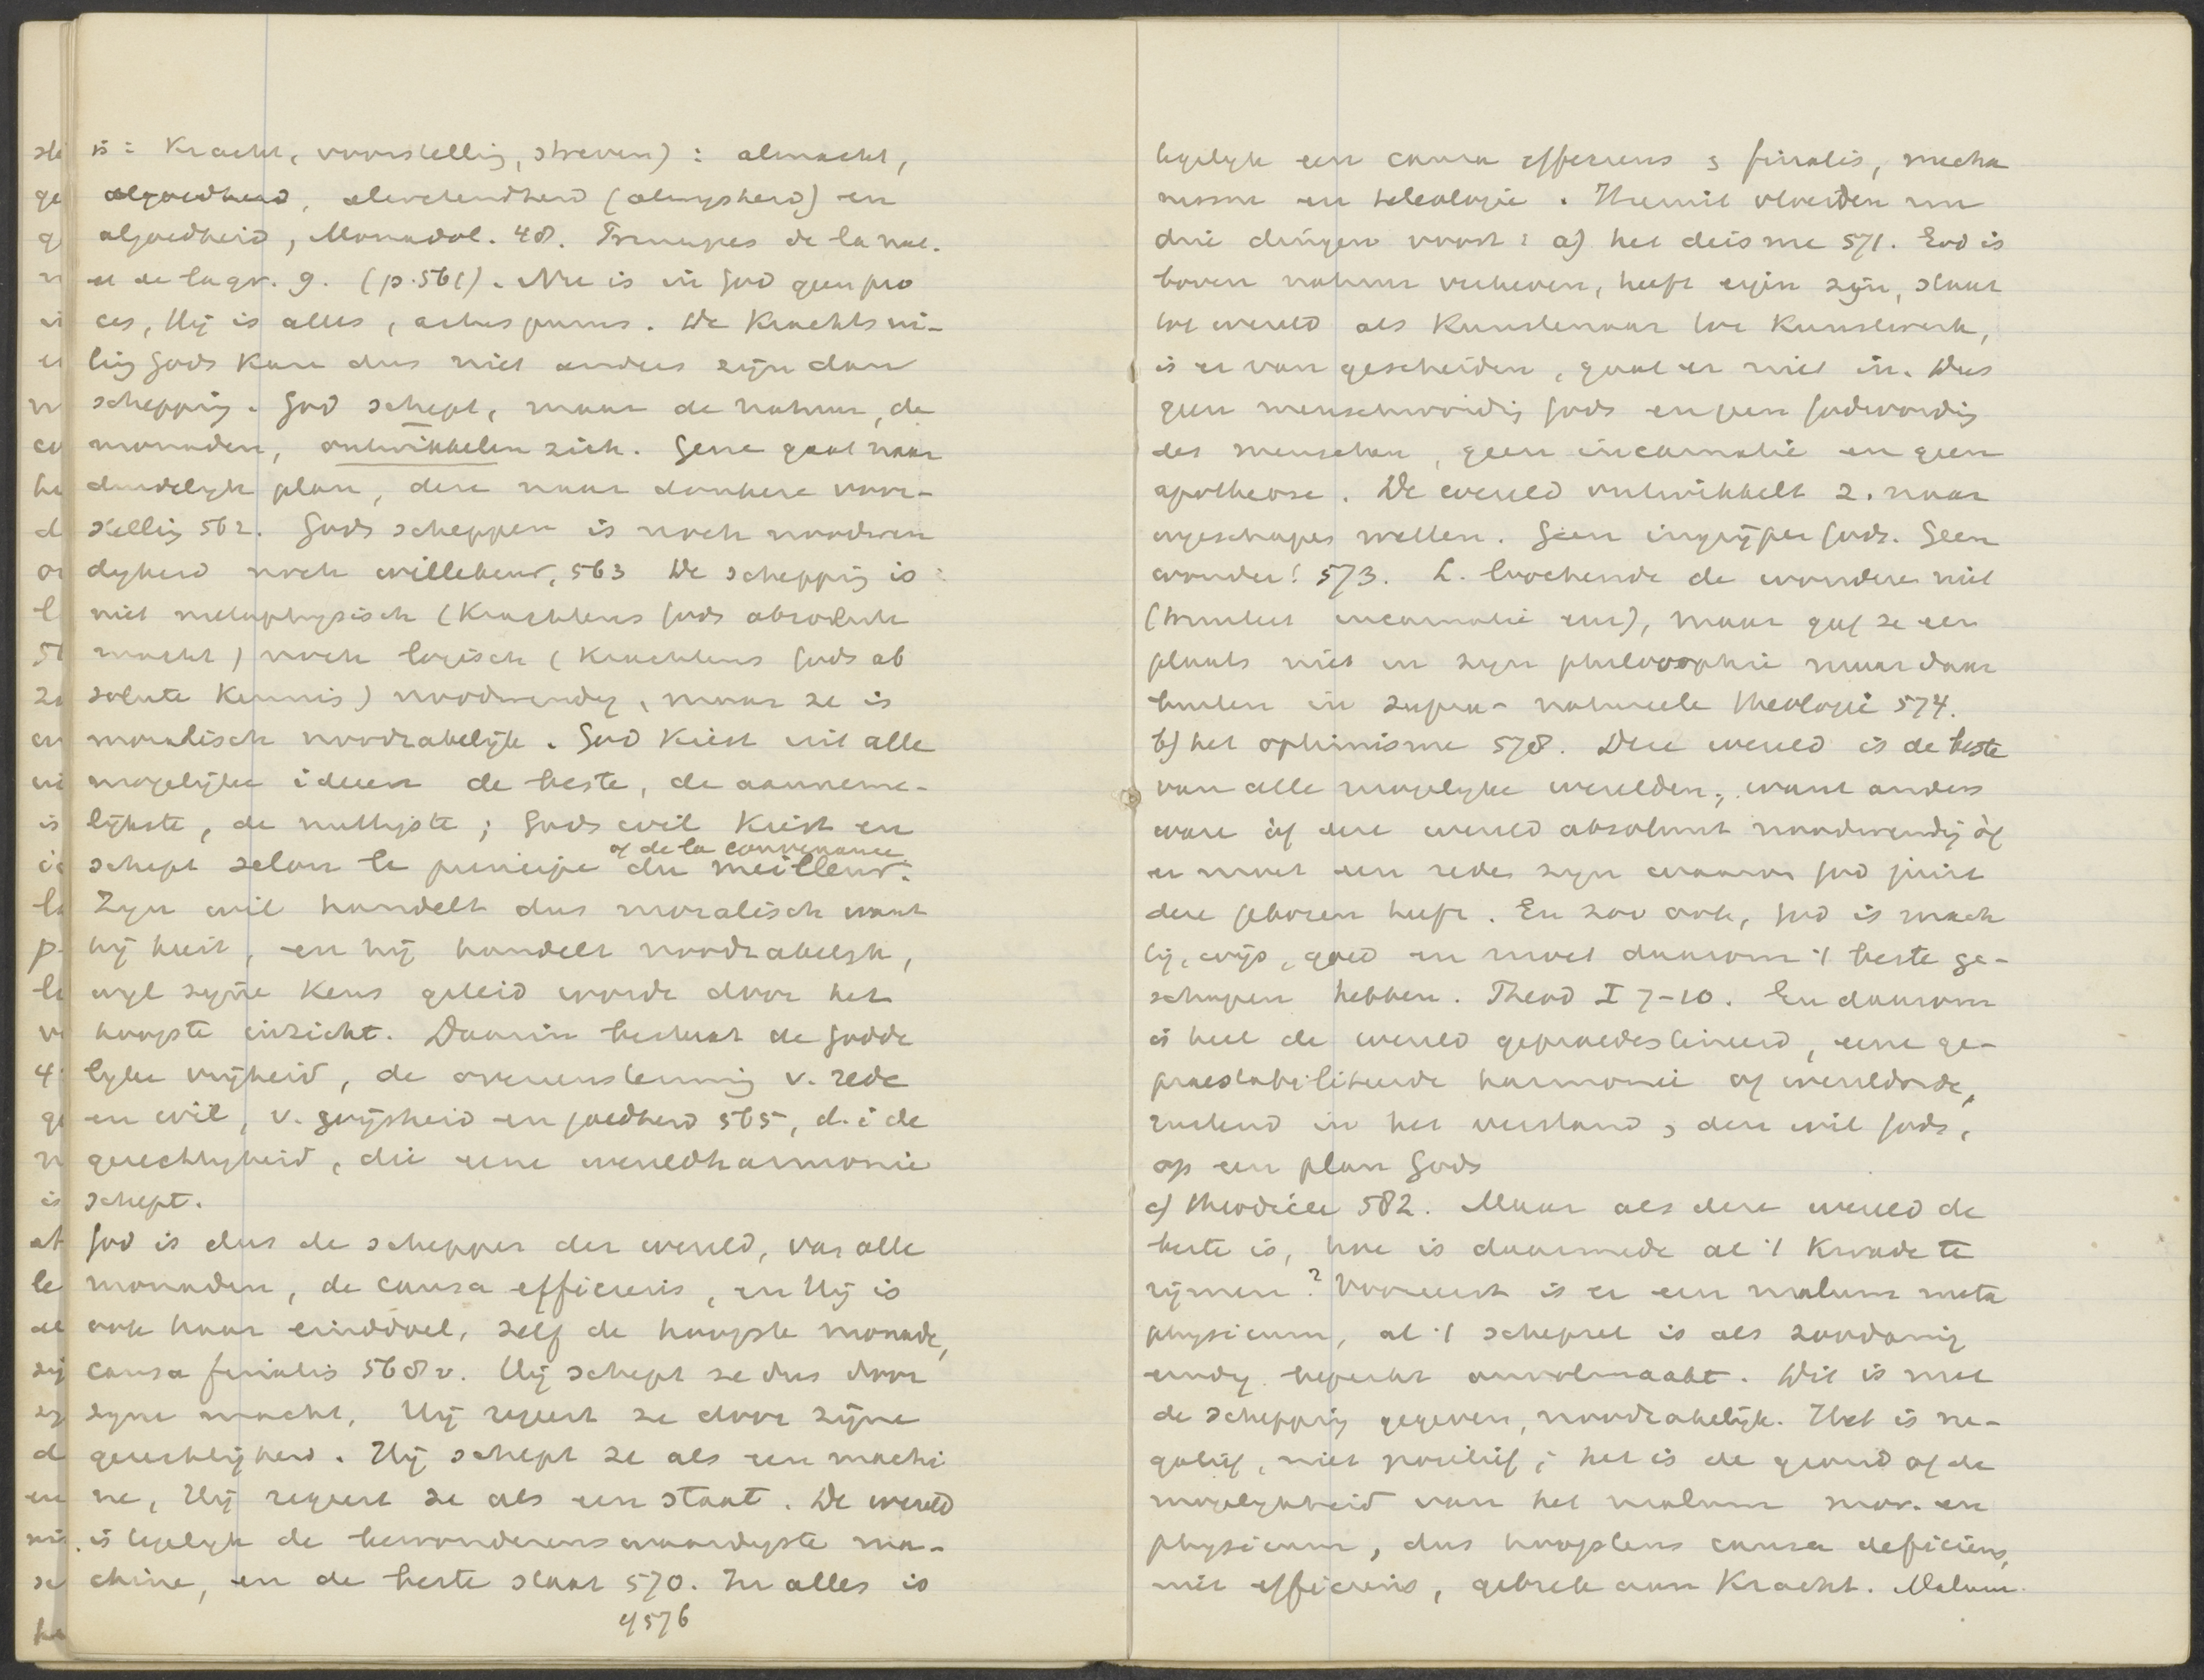 is: Kracht, voorstelling, streven): almacht,
algoedheid, alwetendheid (alwijsheid) en
algoedheid, Monadol. 48. Principes de la nat.
et de la gr. 9. (p. 561). Nu is in God geen pro
ces, Hij is alles, actus purus. De Krachtsui-
ting Gods kan dus niet anders zijn dan
schepping. God schept, maar de natuur, de
monaden, ontwikkelen zich. Gene gaat naar
duidelijk plan, deze naar donkere voor-
stelling 562. Gods scheppen is noch noodwen
digheid noch willekeur, 563 De schepping is
niet metaphysisch (Krachtens Gods absolute
macht) noch logisch (Krachtens Gods ab
solute Kennis) noodwendig, maar ze is
moralisch noodzakelijk. God Kiest uit alle
mogelijke ideeen de beste, de aanneme-
lijkste, de nuttigste; Gods wil Kiest en
of de la convenance
schept selon le principe du meilleur.
Zijn wil handelt dus moralisch want
hij kiest, en hij handelt noodzakelijk,
wijl zijne Keus geleid wordt door het
hoogste inzicht. Daarin bestaat de Godde
lijke vrijheid, de overeenstemming v. rede
en wil, v. wijsheid en goedheid 565, d. i de
gerechtigheid, die eene wereldharmonie
schept.
God is dus de schepper der wereld, van alle
monaden, de causa efficiens, en Hij is
ook haar einddoel, zelf de hoogste monade,
causa finalis 568 v. Hij schept ze dus door
zijne macht, Hij regeert ze door zijne
gerechtigheid. Hij schept ze als een machi
ne, Hij regeert ze als een staat. De wereld
is tegelijk de bewonderenswaardigste ma-
chine, en de beste staat 570. In alles is
4576
tegelijk een causa efficiens & finalis, mecha
nisme en teleologie. Hieruit vloeiden nu
drie dingen voort: a) het deisme 571. God is
boven natuur verheven, heeft eigen zijn, staat
tot wereld als Kunstenaar tot Kunstwerk,
is er van gescheiden, gaat er niet in. Dus
geen menschwording Gods en geen Godwording
des menschen, geen incarnatie en geen
apotheose. De wereld ontwikkelt z. naar
ingeschapen wetten. Geen ingrijpen Gods. Geen
wonder! 573. L. loochende de wonderen niet
(triniteit incarnatie enz), maar gaf ze een
plaats niet in zijn philosophie maar daar
buiten in supra-natureele theologie 574.
b) het optimisme 578. Deze wereld is de beste
van alle mogelijke werelden; want anders
ware òf deze wereld absoluut noodwendig òf
er moet een reden zijn waarom God juist
deze gekozen heeft. En zoo ook, God is mach
tig, wijs, goed en moet daarom 't beste ge-
schapen hebben. Theod I 7-10. En daarom
is heel de wereld gepraedestineerd, eene ge-
praestabiliteerde harmonie of wereldorde,
rustend in het verstand & den wil Gods,
op een plan Gods
c) theodicee 582. Maar als deze wereld de
beste is, hoe is daarmede al 't Kwade te
rijmen? Vooreerst is er een malum meta
physicum, al 't schepsel is als zoodanig
eindig beperkt onvolmaakt. Dit is met
de schepping gegeven, noodzakelijk. Het is ne-
gatief, niet positief; het is de grond of de
mogelijkheid van het malum mor. en
physicum, dus hoogstens causa deficiens,
niet efficiens, gebrek aan Kracht. Malum